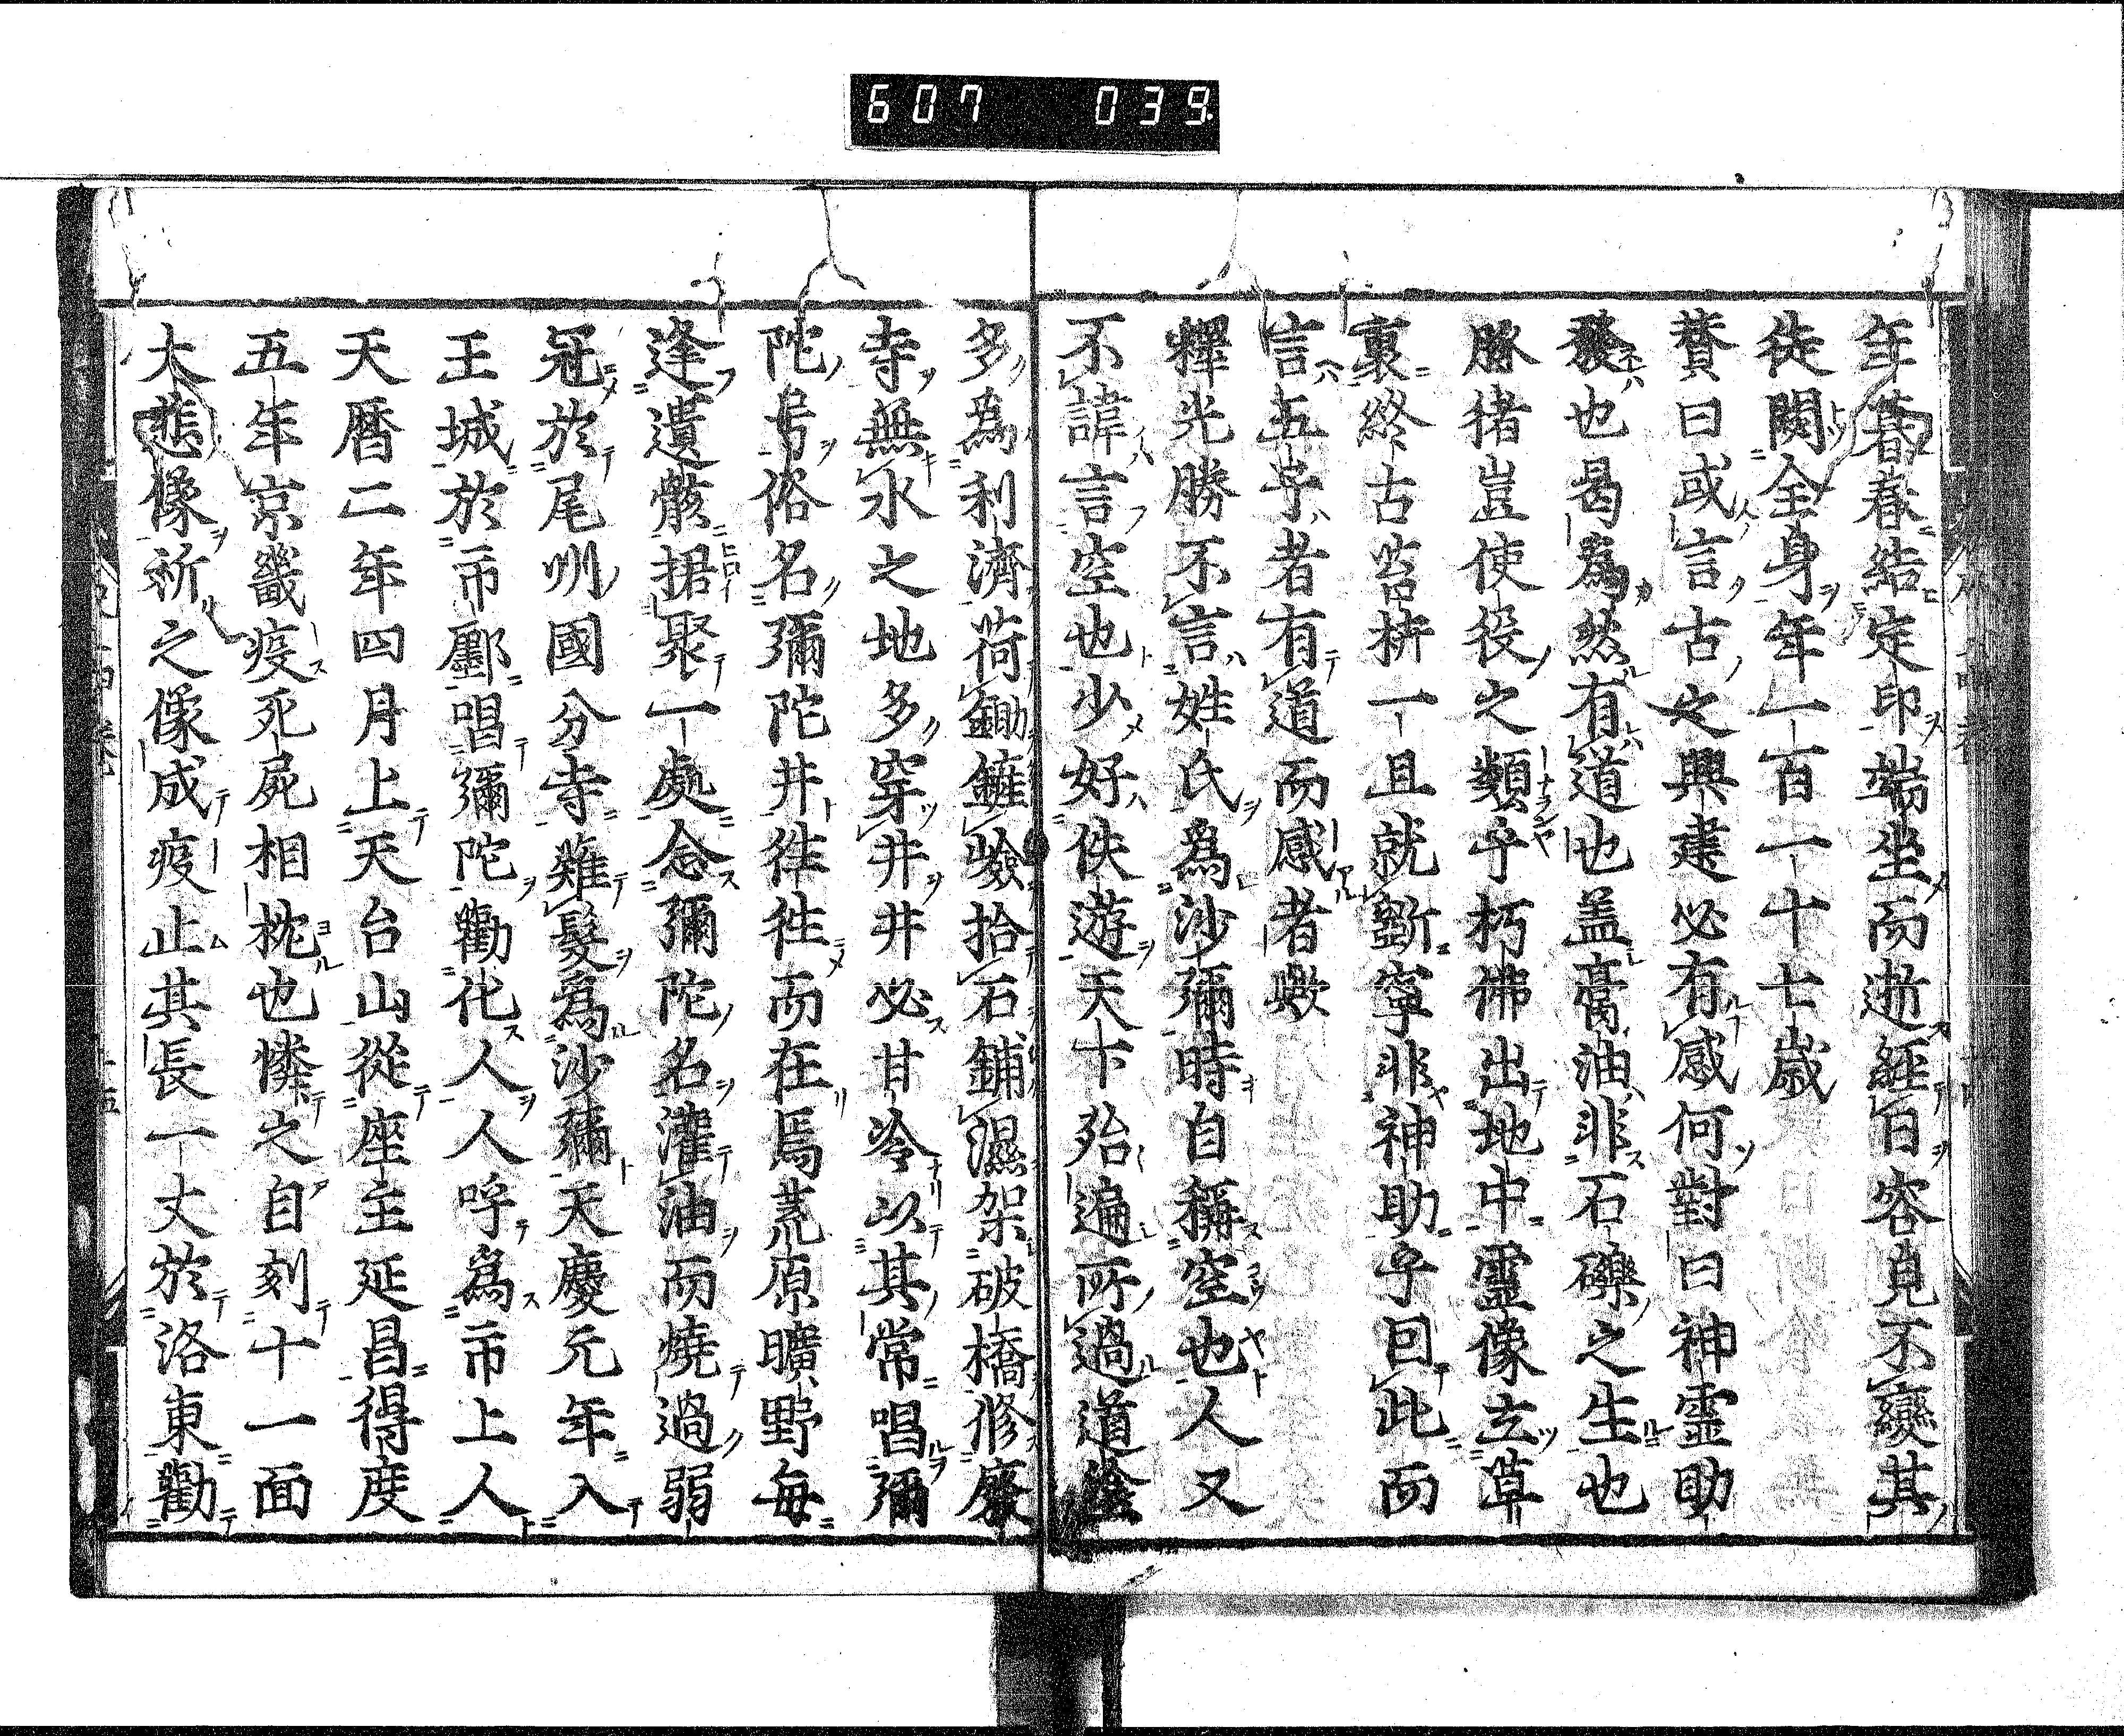 607 039
年暮春結定印端坐而逝經百容皃不變其
徒闕全身年一百一十七歲
賛曰或言古之興建必有感何對曰神靈助
發也曷為然有道也盖膏油非石礫之生也
豚猪豈使役之類乎朽佛出地中靈像立草
裏終古苔
一且就斷寧非神助乎回此而
言五
者有道而感者歟
釋光勝不言姓氏為沙彌時自稱空也人又
不諱言空也少好佚遊天下殆遍所過道塗
多為利濟荷鋤
嶮拾石鋪濕架破橋修廢
寺無水之地多穿井井必甘冷以其常唱彌
陀号俗名彌陀井徃徃而在焉荒原曠野每
逢遺骸捃聚一處念彌陀名灌油而燒過弱
冠於尾州國分寺薙髮為沙彌天慶元年入
王城於市鄽唱彌陀勸化人人呼為市上人
天曆二年四月上天台山從座主延昌得度
五年京畿疫死屍相枕也憐之自刻十一面
大悲像祈之像成疫止其長一丈於洛東勸